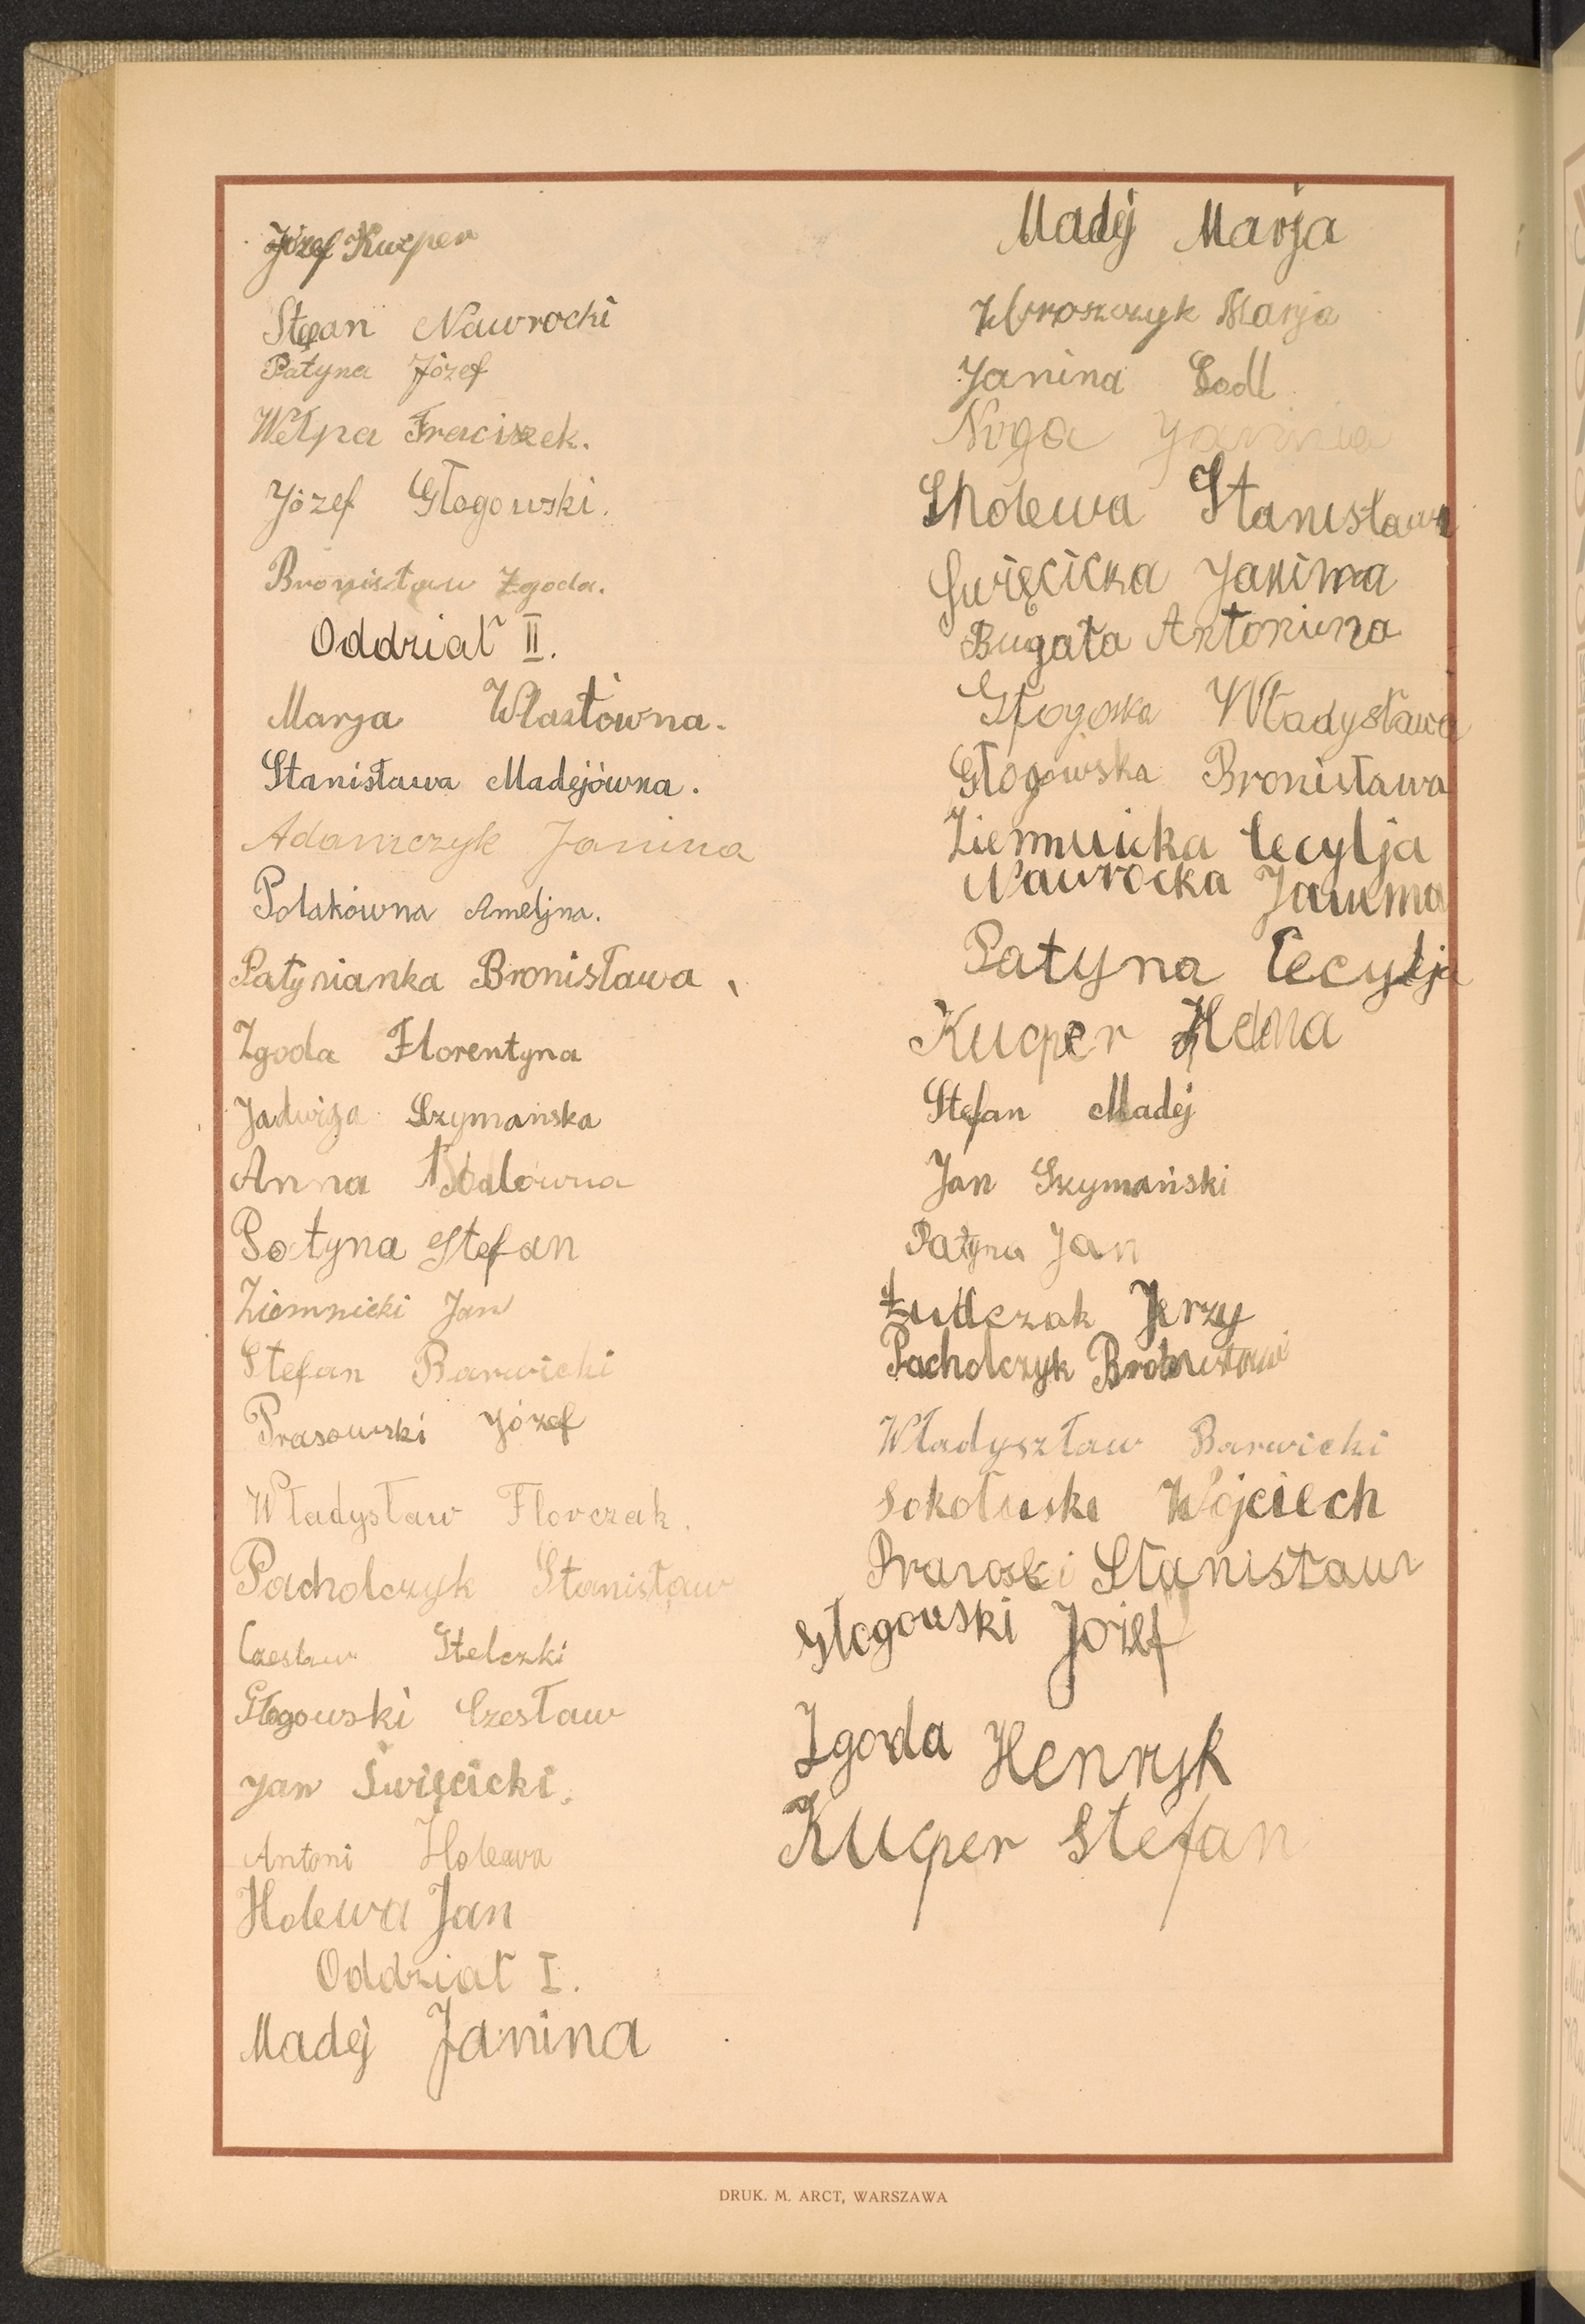 Józef Kucper
Stefan Nawrocki
Patyna Józef
Wełpa Fraciszek.
Józef Głogowski.
Bronisław Zgoda.
Oddział II.
Marja Wlazłówna.
Stanisława Madejówna.
Adamczyk Janina
PolakównaAmeljna.
Patynianka Bronisława,
Zgoda Florentyna
Jadwiga Szymańska
Anna
Patyna Stefan
Ziemnicki Jan
Stefan Barwicki
Prasowski Józef
Władysław Florczak.
Pacholczyk Stanisław
Czesław Stelczki
Głogowski Czesław
Jan Święcicki.
Antoni Holewa
Holewa Jan
Oddział I.
Madej Janina
Madej Marja
Marja
Janina Sodl
Noga Janina
Sholewa Stanisław
Swięcicka Janina
Bugała Antonina
Głogoska Władysława
Głogowska Bronisława
Ziemnicka Cecylja
Nawrocka Janina
Patyna Cecylja
Kucper Helena
Stefan Madej
Jan Szymański
Patyna Jan
Łudczak Jerzy
Pacholczyk Bronisław
Władyszław Barwicki
Sokołuski Wojciech
Stanisław
Głogowski Józef
Zgoda Henryk
Kucper Stefan
DRUK. M. ARCT, WARSZAWA